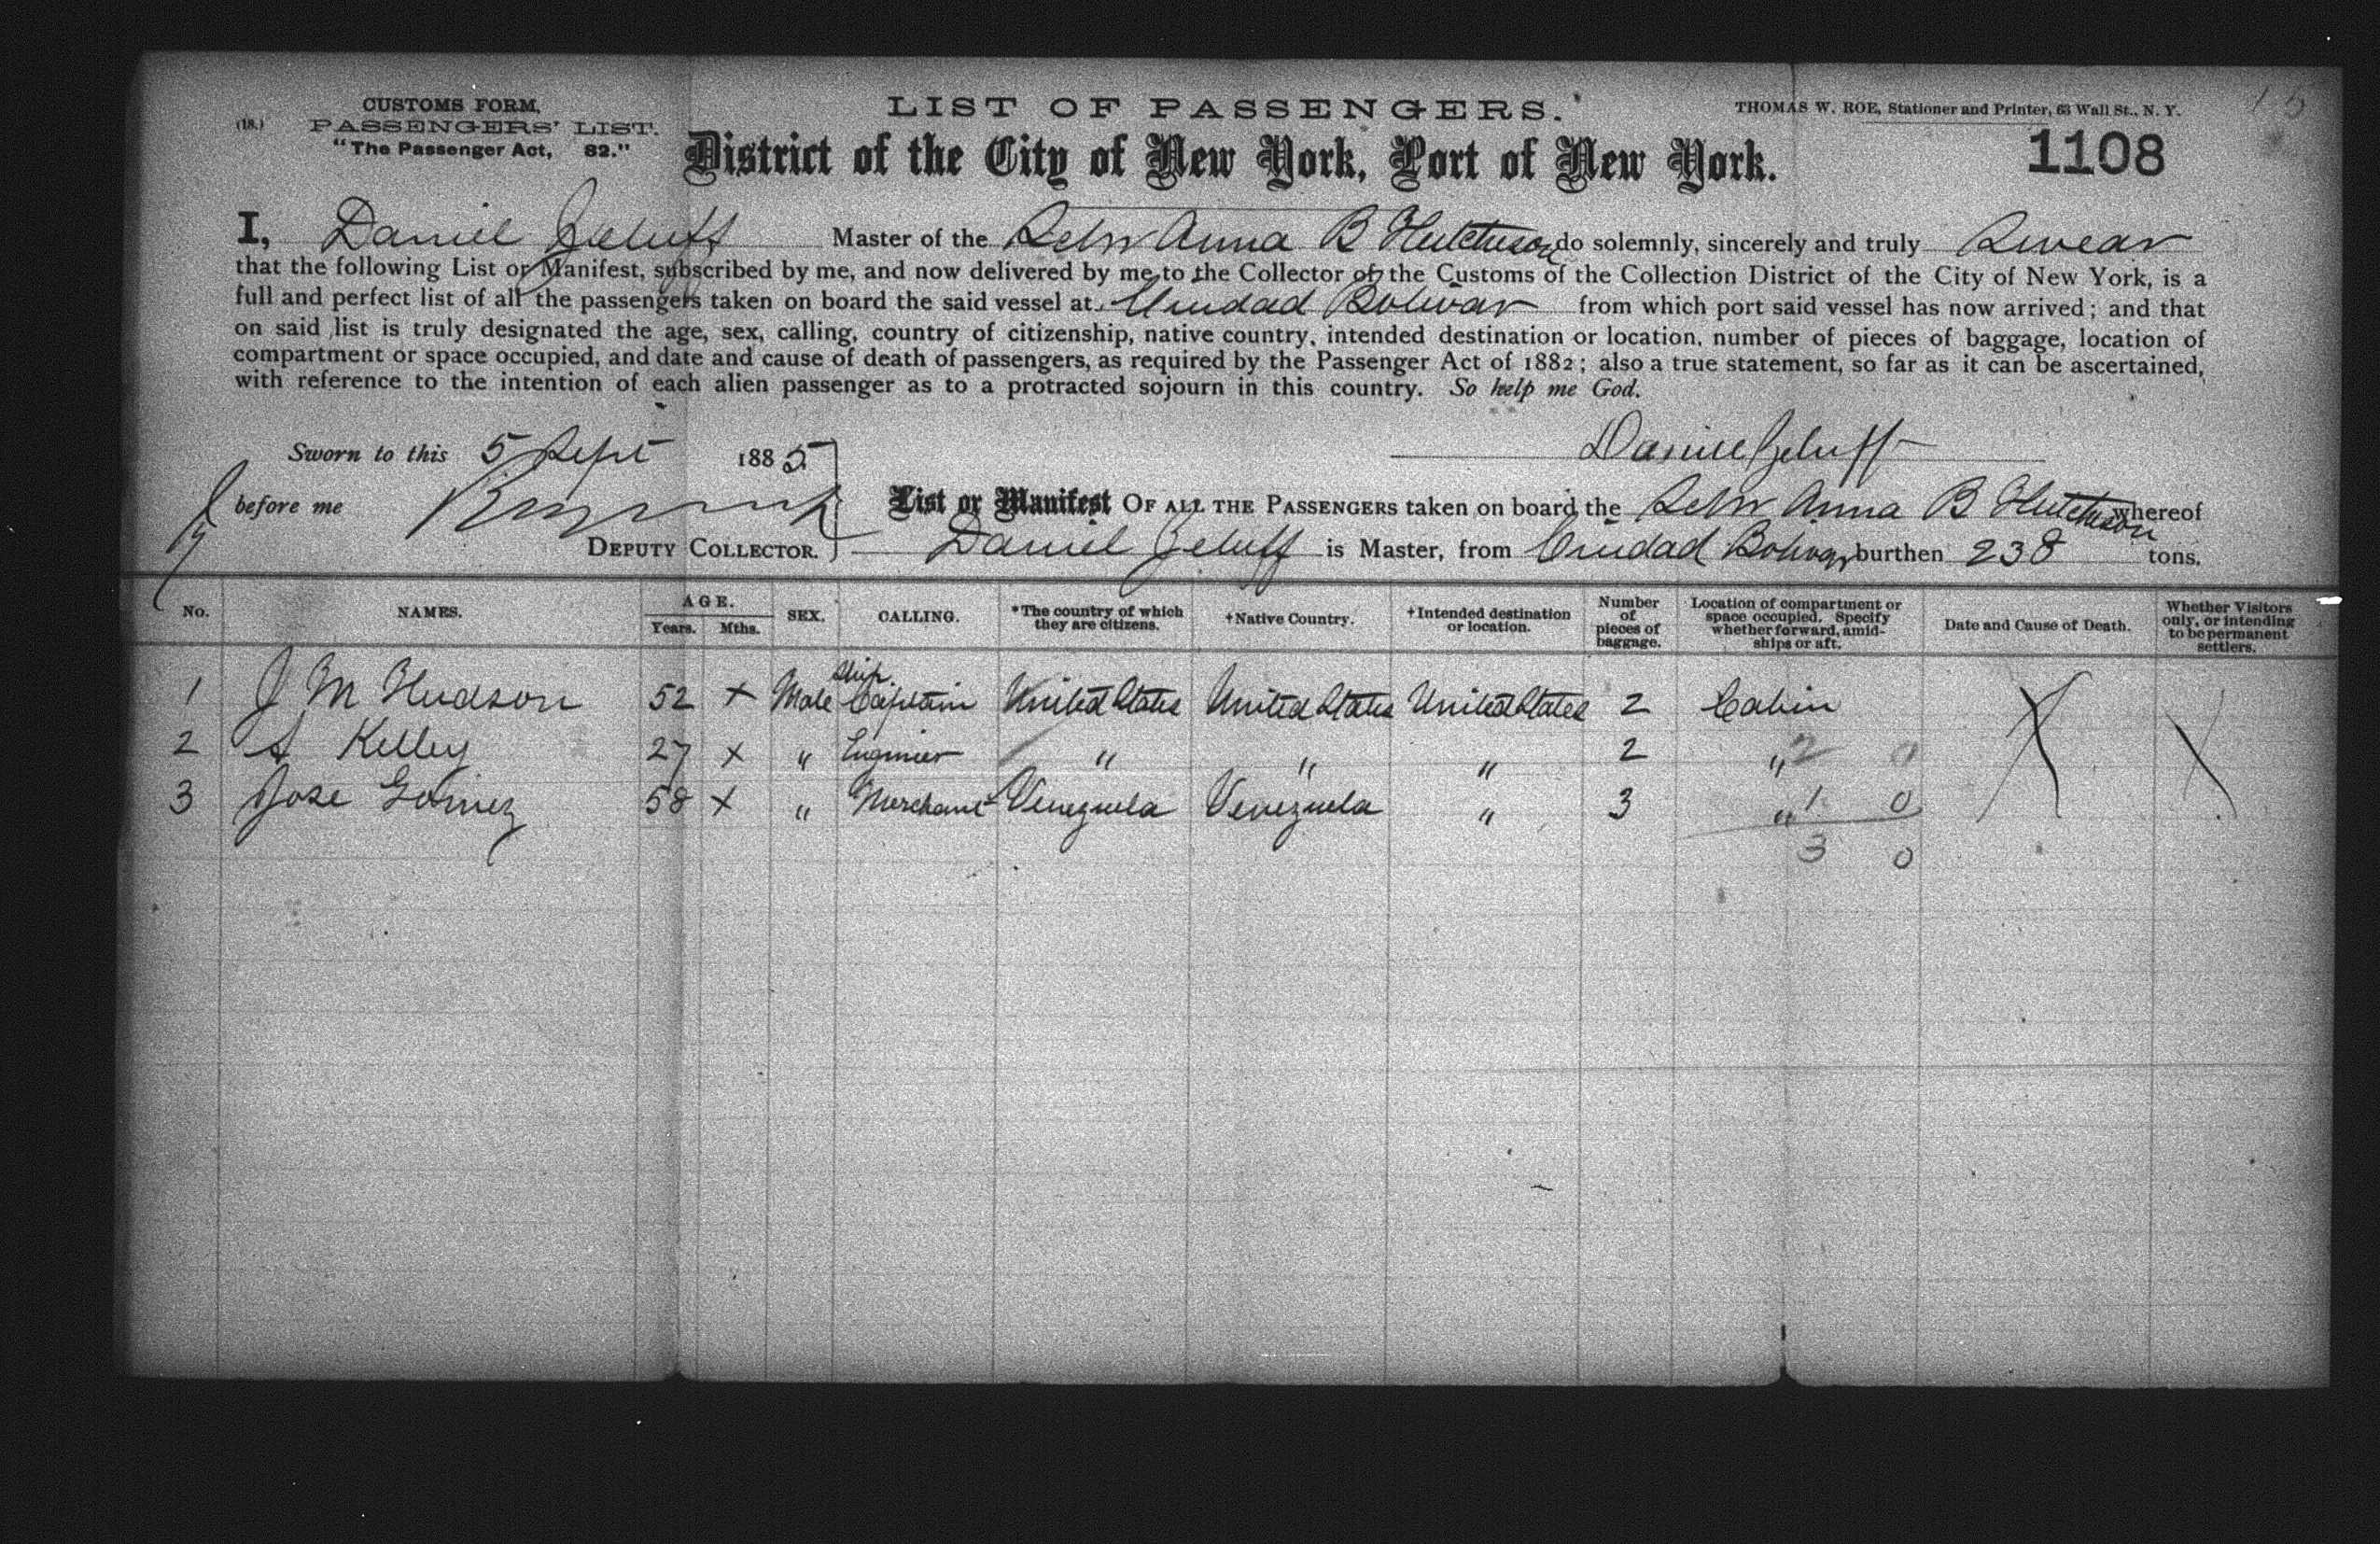 CUSTOMS FORM.
(18.) PASSENGERS' LIST.
"The Passenger Act, 82."
LIST OF PASSENGERS.
THOMAS W. ROE, Stationer and Printer, 63 Wall St., N. Y.
District of the City of New York, Port of New York.
1108
I, Daniel Master of the Schr Anna B Hutchison do solemnly, sincerely and truly Swear
that the following List or Manifest, subscribed by me, and now delivered by me to the Collector of the Customs of the Collection District of the City of New York, is a
full and perfect list of all the passengers taken on board the said vessel at Ciudad Bolivar from which port said vessel has now arrived; and that
on said list is truly designated the age, sex, calling, country of citizenship, native country, intended destination or location, number of pieces of baggage, location of
compartment or space occupied, and date and cause of death of passengers, as required by the Passenger Act of 1882; also a true statement, so far as it can be ascertained,
with reference to the intention of each alien passenger as to a protracted sojourn in this country. So help me God.
Sworn to this 5 Sept 1885
Daniel
before me
List or Manifest OF ALL THE PASSENGERS taken on board the Schr Anna B Hutchison whereof
DEPUTY COLLECTOR.
Daniel is Master, from Ciudad Bolivar burthen 238 tons.
No. NAMES. AGE. Years. Mths. SEX. CALLING. *The country of which they are citizens. †Native Country. †Intended destination or location. Number of pieces of baggage. Location of compartment or space occupied. Specify whether forward, amidships or aft. Date and Cause of Death. Whether Visitors only, or intending to be permanent settlers.
1 J M Hudson 52 x Male Ship Captain United States United States United States 2 Cabin
2 A Kelley 27 x " Engineer " " " 2 " 2 0
3 Jose Gomez 58 x " Merchant Venezuela Venezuela " 3 " 1 0
3 0